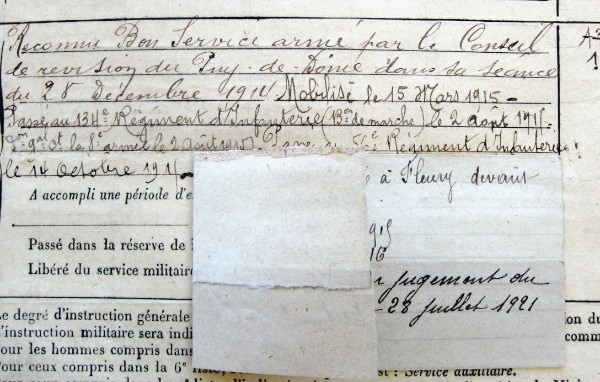 Reconnu Bon Service armé par le Conseil
de révision du Puy-de-Dôme dans sa séance
du 28 Décembre 1914 Mobilisé le 15 Mars 1915 -
Passé au 134e Régiment d'Infanterie (13me de marche) le 2 août 1915.
la 8e armée le 2 août Régiment d'Infanterie
le 14 Octobre 1915.
A accompli une période d'e
à Fleury devant
915
Passé dans la réserve de
16
Libéré du service militaire
jugement du
- 28 juillet 1921
Le degré d'instruction générale
l'instruction militaire sera indi
pour les hommes compris dans
Pour ceux compris dans la 6e liste,
st : Service auxiliaire.